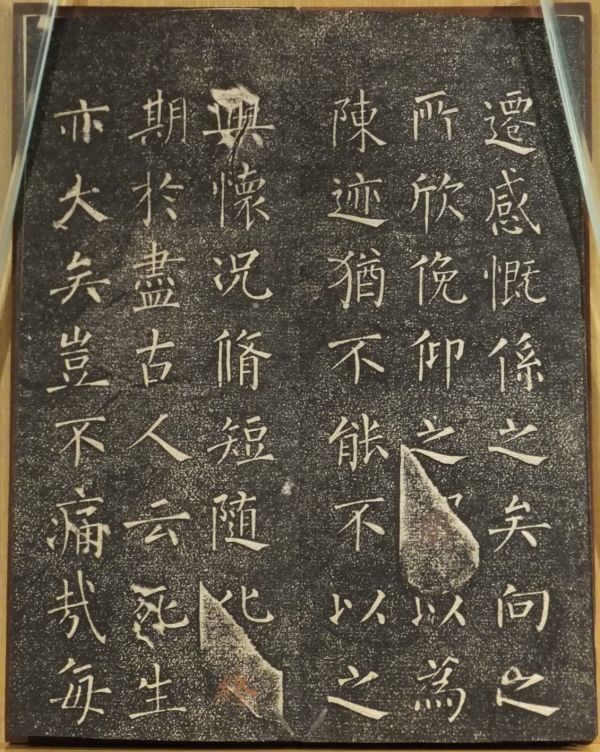 遷感慨係之矣向之
所欣俛仰之以為
陳迹猶不能不以之
興懷况脩短随化終
期於盡古人云死生
亦大矣豈不痛哉每